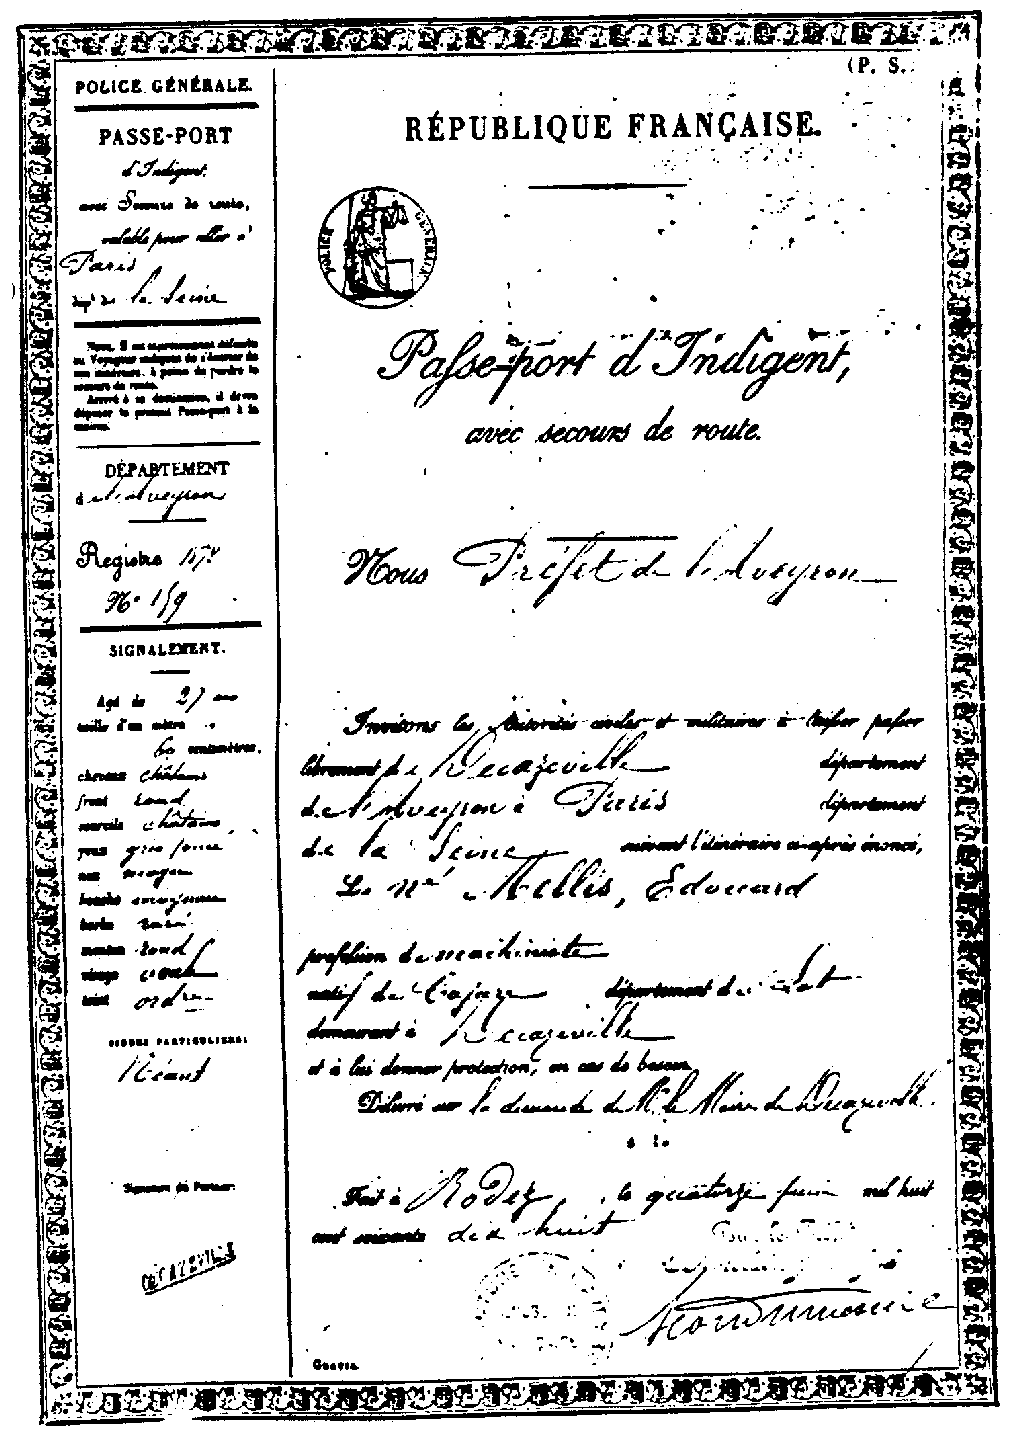 (P. S.
POLICE GÉNÉRALE.
PASSE-PORT
d'Indigent,
avec Secours de route,
valable pour aller à
Paris
dép.t de la Seine
Nota. Il est expressément défendu
au Voyageur indigent de s'écarter de
son itinéraire, à peine de perdre le
secours de route.
Arrivé à sa destination, il devra
déposer le présent Passe-port à la
mairie.
DÉPARTEMENT
de l'Aveyron
Registre
N.o 159
SIGNALEMENT.
Agé de 27 ans
taille d'un mètre
60 centimètres,
cheveux châtains
front rond
sourcils châtains
yeux gris foncé
nez moyen
bouche moyenne
barbe rasé
menton rond
visage ovale
teint ordre
SIGNES PARTICULIERS:
Néant
Signature du Porteur:
DECAZEVILLE
RÉPUBLIQUE FRANÇAISE.
POLICE GÉNÉRALE
Passe-port d'Indigent,
avec secours de route.
Nous Préfet de l'Aveyron
Invitons les Autorités civiles et militaires à laisser passer
librement de Decazeville département
de l'Aveyron à Paris département
de la Seine suivant l'itinéraire ci-après énoncé,
Le né Mellis, Edouard
profession de machiniste
natif de Cajarc département du Lot
demeurant à Decazeville
et à lui donner protection, en cas de besoin.
Délivré sur la demande de Mr le Maire de Decazeville
Fait à Rodez, le quatorze juin mil huit
cent soixante dix huit
Pour le Préfet
Gratis.